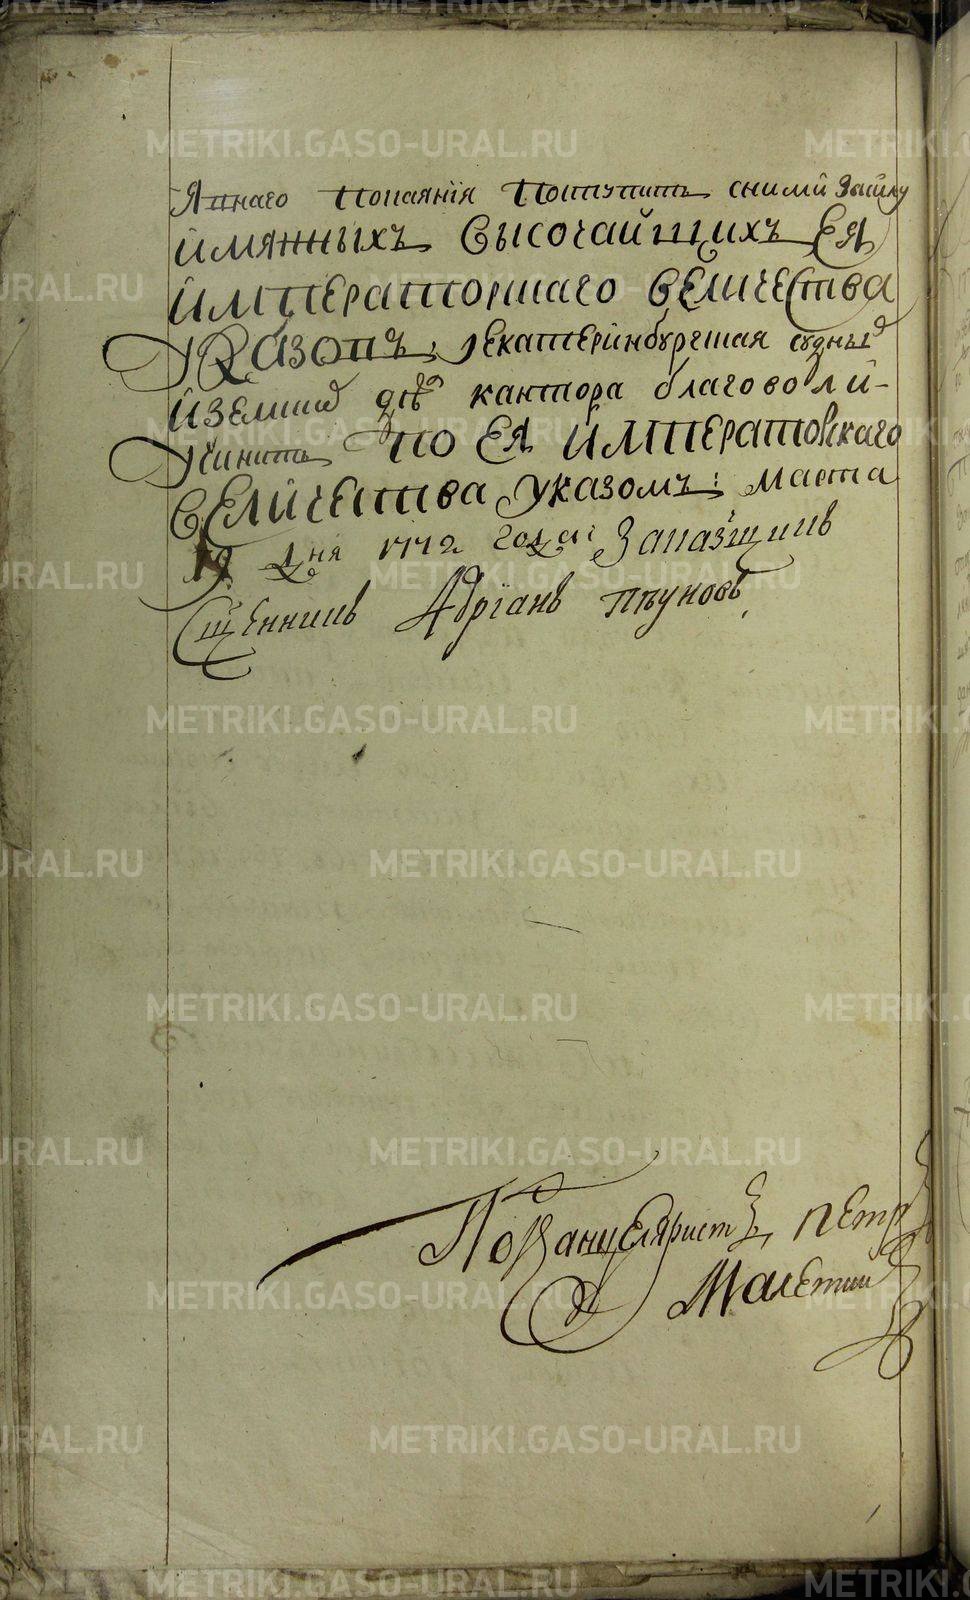 ятнаго покаянїя поступить снимй Всилу
имянныхъ высочайшихъ ЕЯ
ИМПЕРАТОРСКАГО ВЕЛИЧЕСТВА
УКАЗОВЪ; уекатерінбургская судныхъ
иземскихъ делъ кантора благоволи-
учинить ПО ЕЯ ИМПЕРАТОРСКАГО
ВЕЛИЧЕСТВА указомъ: марта
19 дня 1772 года: Заказщикъ
Священникъ Адрїанъ
Подканцеляристъ Петръ
METRIKI.GASO-URAL.RU